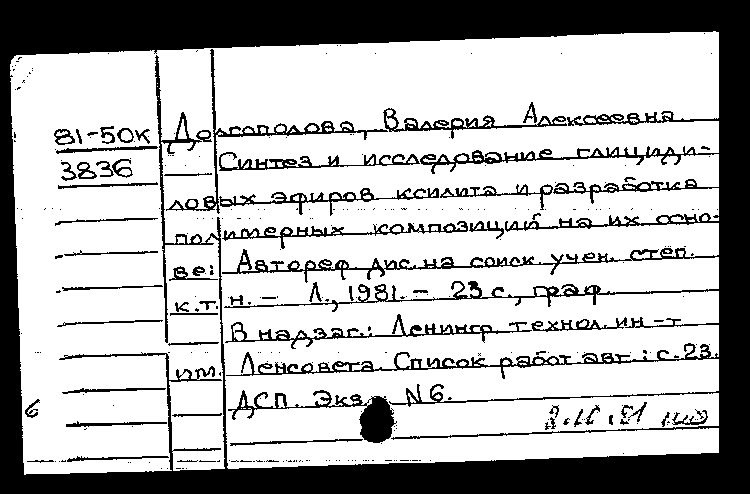 81-50К Долгополова, Валерия Алексеевна
3836 Синтез и исследование глициди-
ловых эфиров ксилита и разработка
полимерных композиций на их осно-
ве: Автореф дис. на соиск. учен. степ.
к.т.н. - Л., 1981. - 23 с., граф.
В надзаг.: Ленингр. технол. ин-т
им. Ленсовета. Список работ авт.: с. 23.
ДСП. Экз. N 6.
6